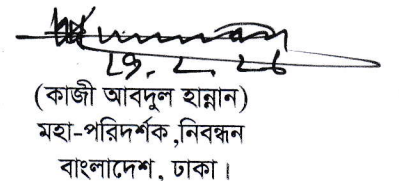 (কাজী আবদুল হান্নান)
মহা-পরিদর্শক,নিবন্ধন
বাংলাদেশ, ঢাকা।